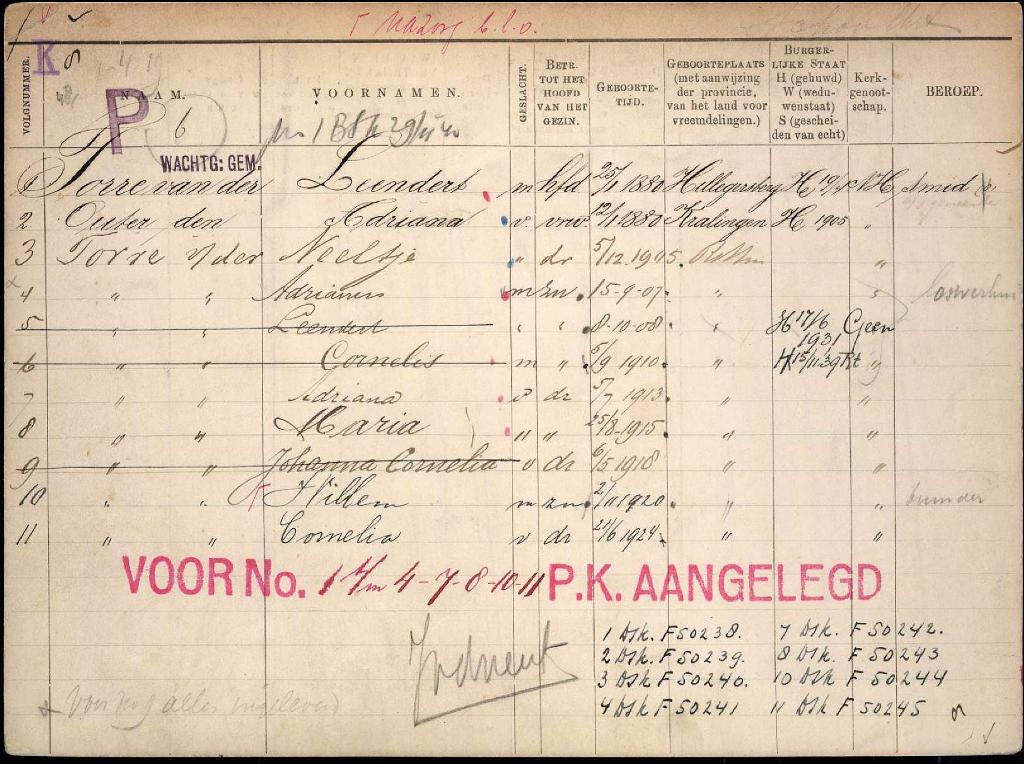 K
VOLGNUMMER. NAAM. VOORNAMEN. GESLACHT. BETR. TOT HET HOOFD VAN HET GEZIN. GEBOORTE-TIJD. GEBOORTEPLAATS (met aanwijzing der provincie, van het land voor vreemdelingen.) BURGER-LIJKE STAAT H (gehuwd) W (wedu-wenstaat) S (geschei-den van echt) Kerk-genoot-schap. BEROEP.
P 6
WACHTG: GEM.
Torre van der Leendert m hfd 25/1 1880 Hillegersberg H NH Smid
2 Outer den Adriana v vrw 12/1 1880 Kralingen H 1905 "
3 Torre v/der Neeltje " dr 5/12.1905. "
4 " " Adrianus m zn. 15-9-07. " "
5 " " Leendert " " 8-10-08. " H 17/6 1931 Geen
6 " " Cornelis m " 5/9 1910. " H 15/11.39 Rt "
7 " " Adriana v dr 5/7 1913. " "
8 " " Maria " " 25/8-1915. " "
9 " " Johanna Cornelia v dr 6/5 1918 " "
10 " " Willem m zn. 2/11 1920. " "
11 " " Cornelia v dr 21/6 1924. " "
VOOR No. 1 t/m 4-7-8-10-11 P.K. AANGELEGD
1 Dsk. F 50238. 7 Dsk. F 50242.
2 Dsk. F 50239. 8 Dsk. F 50243
3 Dsk F 50240. 10 Dsk. F 50244
4 Dsk F 50241 11 Dsk F 50245